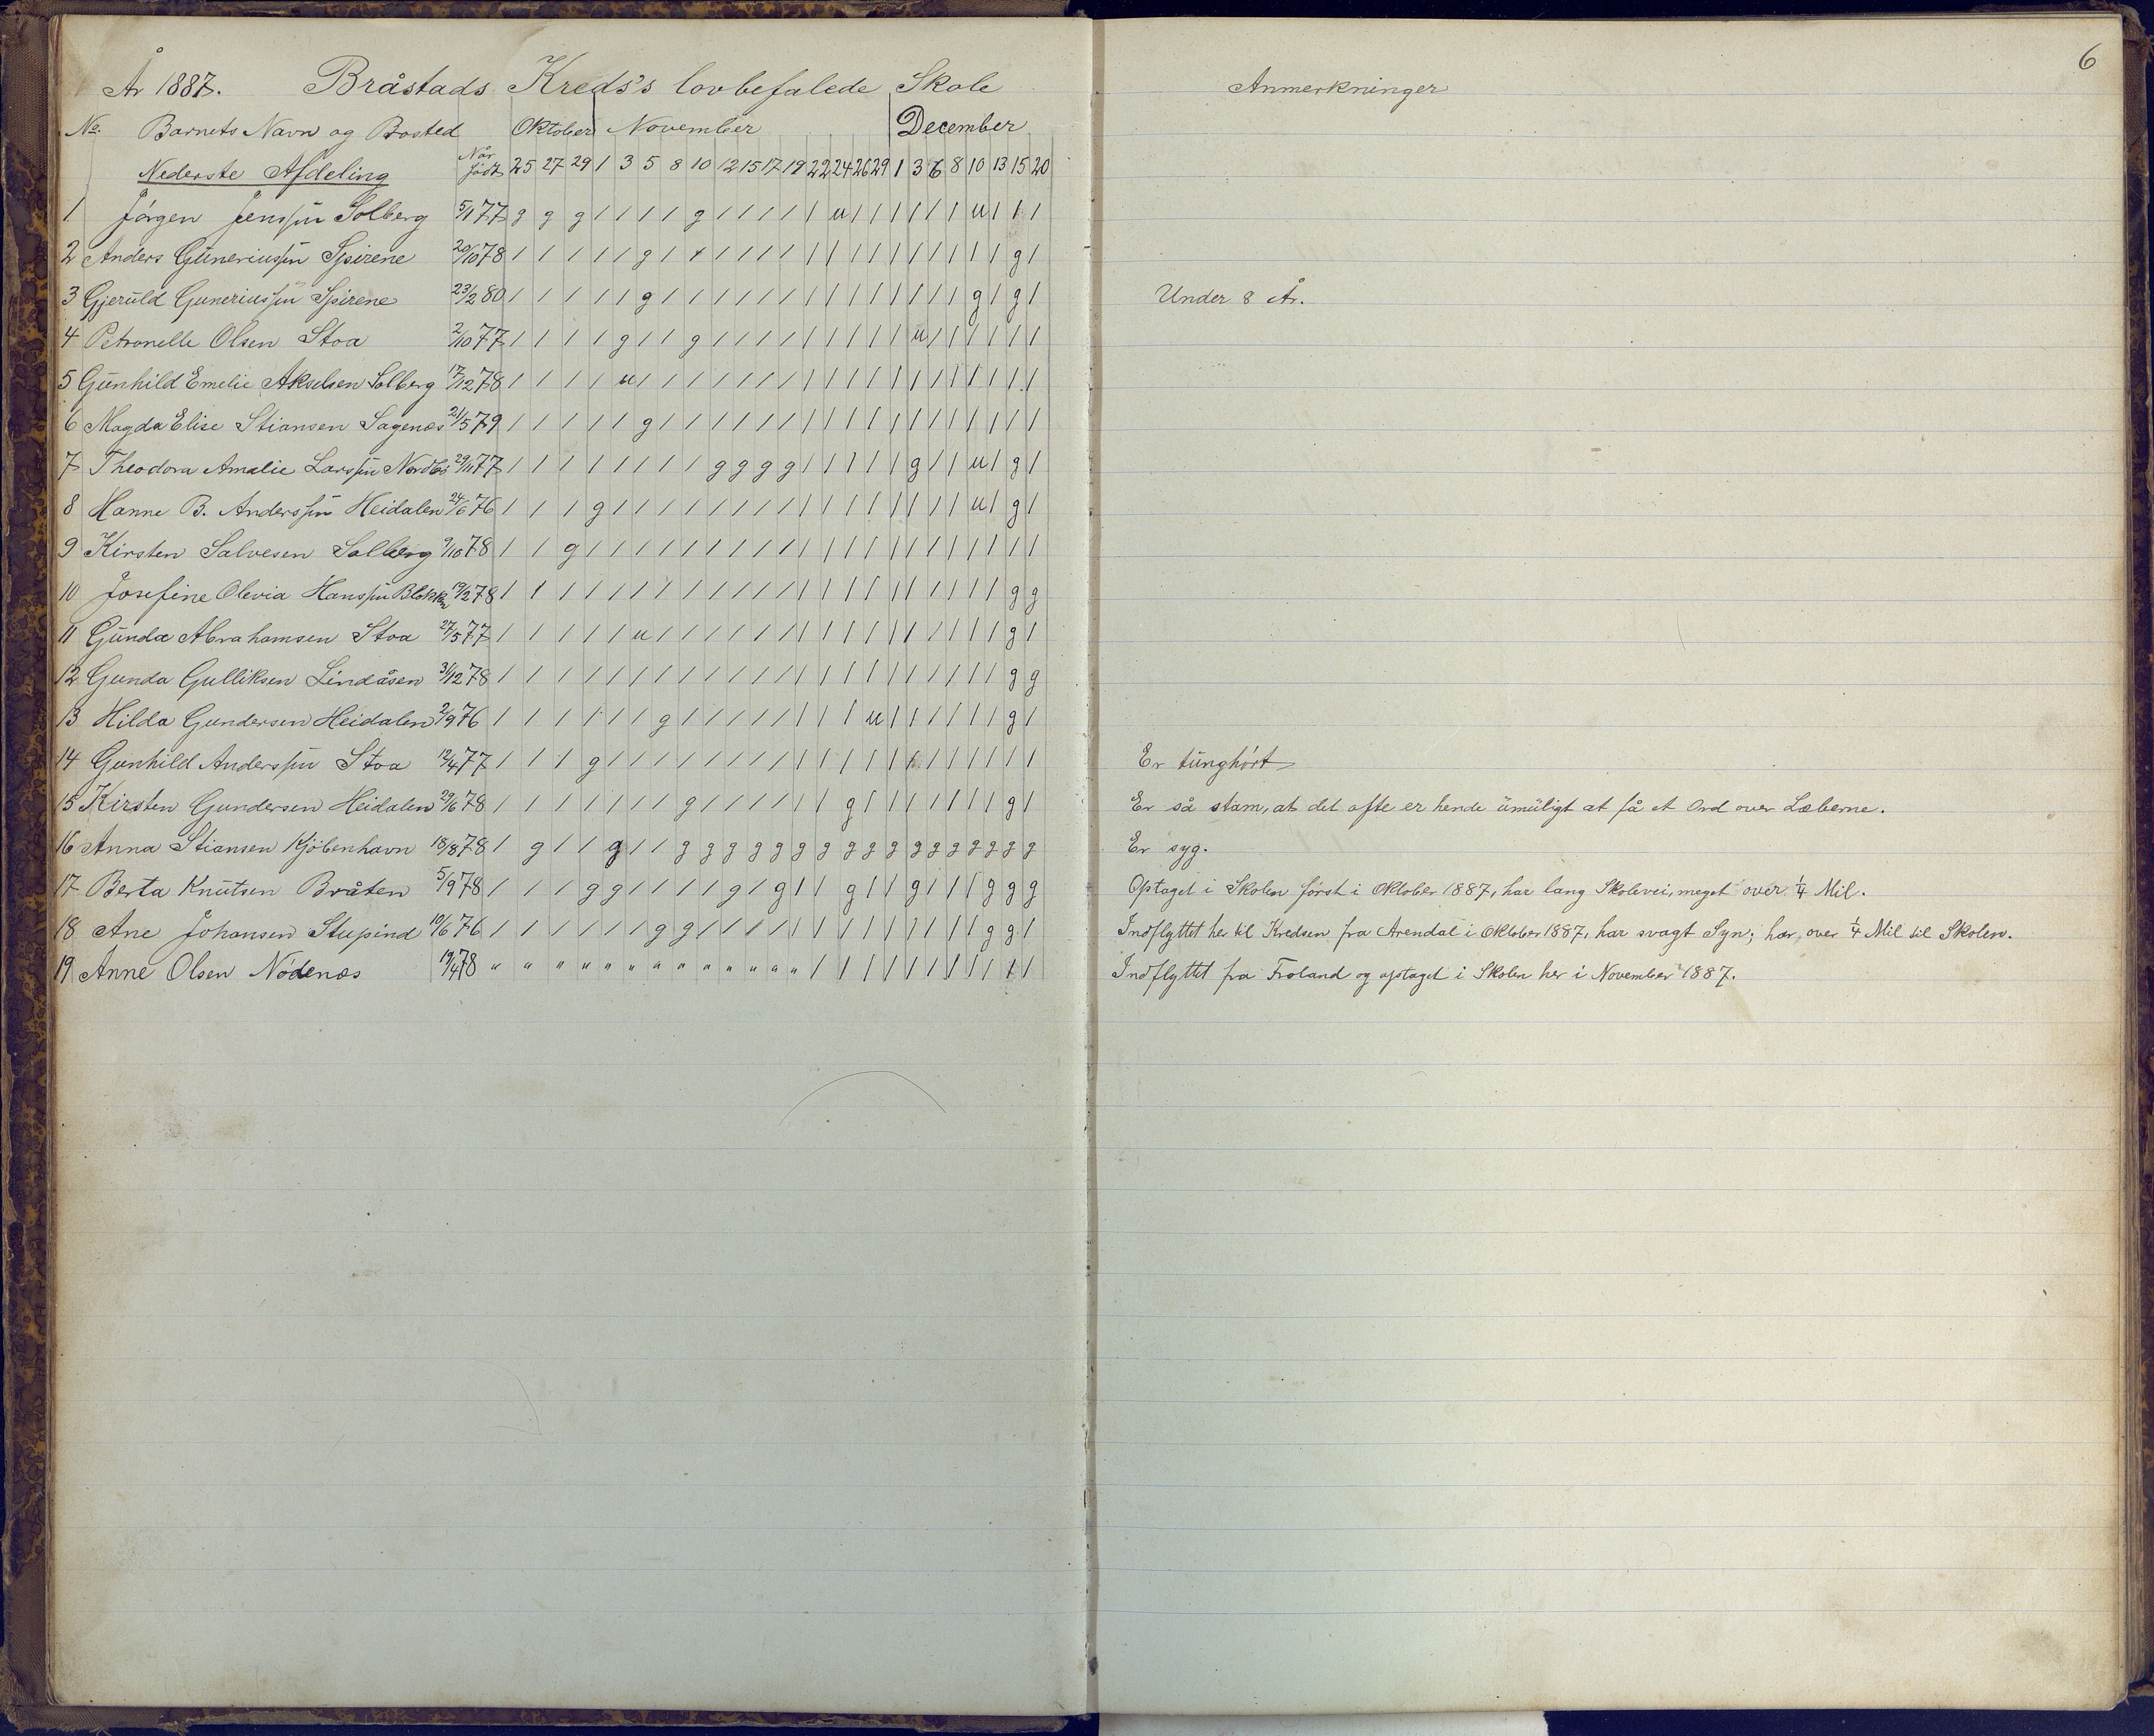 År 1887. Bråstads Kreds's lovbefalede Skole
No. Barnets Navn og Bosted Oktober November December
Nederste Afdeling Når födt 25 27 29 1 3 5 8 10 12 15 17 19 22 24 26 29 1 3 6 8 10 13 15 20
1 Jörgen Jenssen Solberg 5/1 77 g g g / / / / g / / / / / u / / / / / / u / / /
2 Anders Guneriussen Spirene 20/10 78 / / / / / g / / / / / / / / / / / / / / / / g /
3 Gjeruld Guneriussen Spirene 23/2 80 / / / / / g / / / / / / / / / / / / / / g / g /
4 Petronelle Olsen Stoa 2/10 77 / / / / g / / g / / / / / / / / / u / / / / / /
5 Gunhild Emelie Akselsen Solberg 17/12 78 / / / / u / / / / / / / / / / / / / / / / / / /
6 Magda Elise Stiansen Sagenes 21/5 79 / / / / / g / / / / / / / / / / / / / / / / / /
7 Theodora Amalie Larssen Nordbö 29/11 77 / / / / / / / / g g g g / / / / / g / / u / g /
8 Hanne B. Anderssen Heidalen 24/6 76 / / / g / / / / / / / / / / / / / / / / u / g /
9 Kirsten Salvesen Solberg 9/10 78 / / g / / / / / / / / / / / / / / / / / / / / /
10 Josefine Olevia Hanssen Blokken 19/2 78 / / / / / / / / / / / / / / / / / / / / / / g g
11 Gunda Abrahamsen Stoa 27/5 77 / / / / / u / / / / / / / / / / / / / / / / g /
12 Gunda Gulliksen Lindåsen 31/12 78 / / / / / / / / / / / / / / / / / / / / / / g g
13 Hilda Gundersen Heidalen 2/9 76 / / / / / / g / / / / / / / / u / / / / / / g /
14 Gunhild Anderssen Stoa 12/4 77 / / / g / / / / / / / / / / / / / / / / / / / /
15 Kirsten Gundersen Heidalen 29/6 78 / / / / / / / g / / / / / / g / / / / / / / g /
16 Anna Stiansen Kjöbenhavn 18/8 78 / g / / g / / g g g g g g g g g g g g g g g g g
17 Berta Knutsen Bråten 5/9 78 / / / g g / / / / g / g / / g / / g / / / g g g
18 Ane Johansen Stupind 10/6 76 / / / / / / g g / / / / / / / / / / / / / g g /
19 Anne Olsen Nödenæs 19/4 78 " " " " " " " " " " " " " / / / / / / / / / / /
6
Anmerkninger
Under 8 År.
Er tunghört
Er så stam, at det ofte er hende umuligt at få et Ord over Læberne.
Er syg.
Optaget i Skolen först i Oktober 1887, har lang Skolevei, meget over 1/4 Mil.
Indflyttet her til Kredsen fra Arendal i Oktober 1887, har svagt Syn; har over 1/4 Mil til Skolen.
Indflyttet fra Froland og optaget i Skolen her i November 1887.